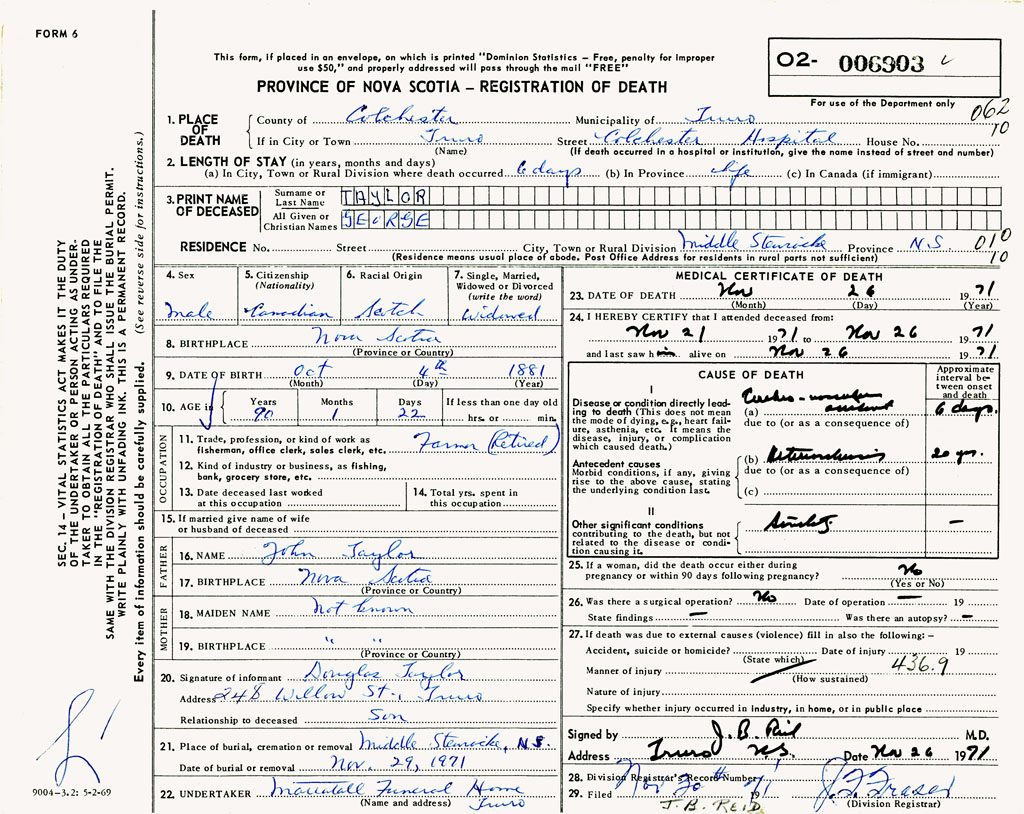 FORM 6
This form, if placed in an envelope, on which is printed "Dominion Statistics – Free, penalty for improper
use $50," and properly addressed will pass through the mail "FREE"
PROVINCE OF NOVA SCOTIA – REGISTRATION OF DEATH
02- 006903
For use of the Department only
062
10
1. PLACE OF DEATH
County of Colchester Municipality of Truro
If in City or Town Truro Street Colchester Hospital House No.
(Name) (If death occurred in a hospital or institution, give the name instead of street and number)
2. LENGTH OF STAY (in years, months and days)
(a) In City, Town or Rural Division where death occurred 6 days (b) In Province life (c) In Canada (if immigrant)
3. PRINT NAME OF DECEASED
Surname or Last Name TAYLOR
All Given or Christian Names GEORGE
RESIDENCE No. Street City, Town or Rural Division Middle Stewiacke Province N.S. 010
(Residence means usual place of abode. Post Office Address for residents in rural parts not sufficient) 10
4. Sex
Male
5. Citizenship
(Nationality)
Canadian
6. Racial Origin
Scotch
7. Single, Married,
Widowed or Divorced
(write the word)
Widowed
8. BIRTHPLACE Nova Scotia
(Province or Country)
9. DATE OF BIRTH Oct 4th 1881
(Month) (Day) (Year)
10. AGE in
Years Months Days If less than one day old
90 1 22 hrs. or min.
OCCUPATION
11. Trade, profession, or kind of work as
fisherman, office clerk, sales clerk, etc. Farmer (Retired)
12. Kind of industry or business, as fishing,
bank, grocery store, etc.
13. Date deceased last worked
at this occupation
14. Total yrs. spent in
this occupation
15. If married give name of wife
or husband of deceased
FATHER
16. NAME John Taylor
17. BIRTHPLACE Nova Scotia
(Province or Country)
MOTHER
18. MAIDEN NAME Not known
19. BIRTHPLACE " "
(Province or Country)
20. Signature of informant Douglas Taylor
Address 248 Willow St., Truro
Relationship to deceased Son
21. Place of burial, cremation or removal Middle Stewiacke, N.S.
Date of burial or removal Nov. 29, 1971
22. UNDERTAKER Mattatall Funeral Home
(Name and address) Truro
MEDICAL CERTIFICATE OF DEATH
23. DATE OF DEATH Nov 26 1971
(Month) (Day) (Year)
24. I HEREBY CERTIFY that I attended deceased from:
Nov 21 1971 to Nov 26 1971
and last saw him alive on Nov 26 1971
CAUSE OF DEATH
Approximate
interval be-
tween onset
and death
I
Disease or condition directly lead-
ing to death (This does not mean
the mode of dying, e.g., heart fail-
ure, asthenia, etc. It means the
disease, injury, or complication
which caused death.)
(a) Cerebro-vascular accident 6 days.
due to (or as a consequence of)
Antecedent causes
Morbid conditions, if any, giving
rise to the above cause, stating
the underlying condition last.
(b) Arteriosclerosis 20 yrs.
due to (or as a consequence of)
(c)
II
Other significant conditions
contributing to the death, but not
related to the disease or condi-
tion causing it.
Senility. –
25. If a woman, did the death occur either during
pregnancy or within 90 days following pregnancy? No
(Yes or No)
26. Was there a surgical operation? No Date of operation – 19
State findings – Was there an autopsy? –
27. If death was due to external causes (violence) fill in also the following: –
Accident, suicide or homicide? Date of injury 19
(State which)
Manner of injury 436.9
(How sustained)
Nature of injury
Specify whether injury occurred in industry, in home, or in public place
Signed by J. B. Reid M.D.
Address Truro N.S. Date Nov 26 1971
28. Division Registrar's Record Number
29. Filed Nov 30 1971 J. F. Fraser
J. B. REID (Division Registrar)
SEC. 14 – VITAL STATISTICS ACT MAKES IT THE DUTY
OF THE UNDERTAKER OR PERSON ACTING AS UNDER-
TAKER TO OBTAIN ALL THE PARTICULARS REQUIRED
IN THE "REGISTRATION OF DEATH" AND TO FILE THE
SAME WITH THE DIVISION REGISTRAR WHO SHALL ISSUE THE BURIAL PERMIT.
WRITE PLAINLY WITH UNFADING INK. THIS IS A PERMANENT RECORD.
Every item of information should be carefully supplied. (See reverse side for instructions.)
9004-3.2: 5-2-69